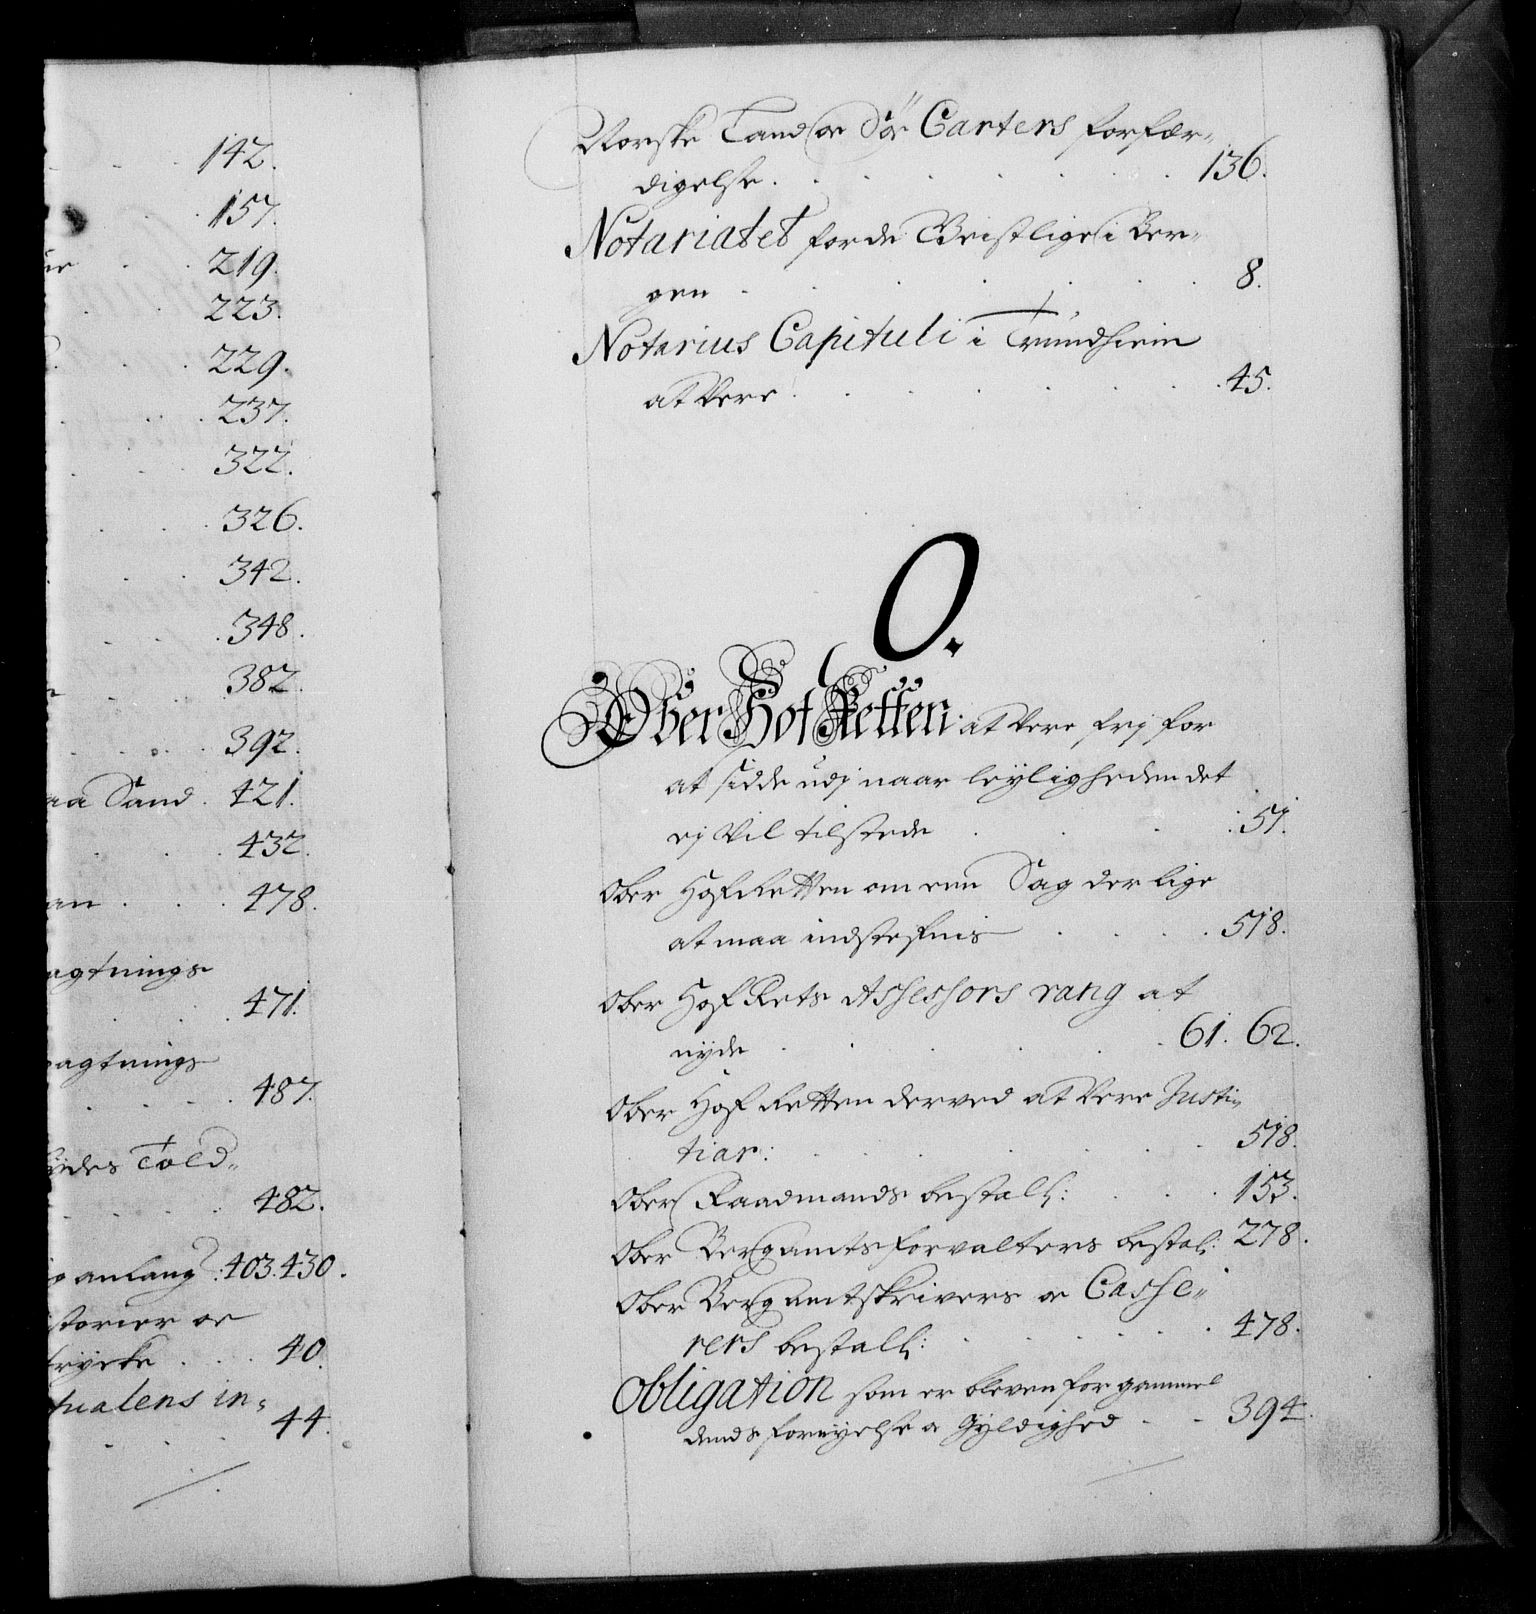 142.
157.
219.
223.
229.
237.
322.
326.
342.
348.
382.
392.
aa Sand. 421.
432.
an . . . 478.
agtnings
471.
pagtnings
487.
Told„
482.
anlang: 403. 430.
storier oc
trycke . . . 40.
tualens in„
44.
Norske Land oc Söe Carters forfær„
digelse. 136.
Notariatet for de Geistlige i Ber„
gen 8.
Notarius Capituli i Trundhiem
at Vere 45.
O.
Ober Hof Retten at Vere frj for
at sidde udj naar leyligheden det
ej Vil tilstede 51.
Ober Hof Retten om een Sag der lige
at maa indstefnis 518.
Ober Hof Rets Assessors rang at
nyde 61. 62.
Ober Hof Retten derved at Vere Justi„
tiar: 518.
Ober Raadmands bestall: 153.
Ober Bergamts forvalters bestal: 278.
Ober Bergamtskrivers oc Casse„
rers bestall: 478.
Obligation som er bleven for gammel
dends fornyelse oc Gyldighed 394.